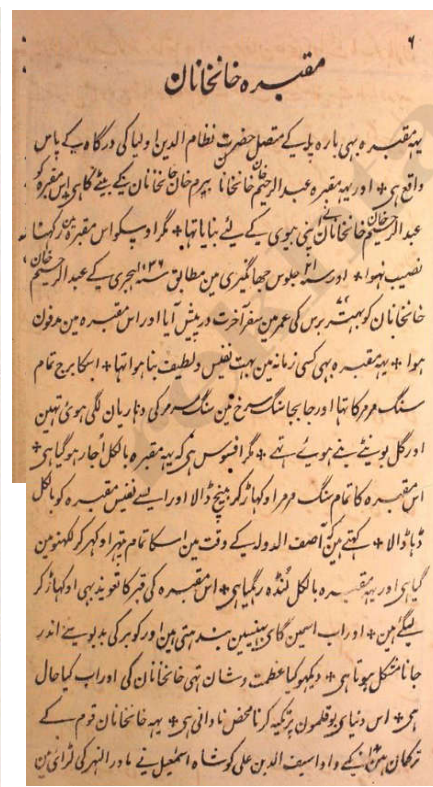 ٦
مقبرہ خانخانان
یہہ مقبرہ بہی بارہ پلہ کے متصل حضرت نظام الدین اولیا کی درگاہ کے پاس
واقع ہی + اور یہہ مقبرہ عبد الرحیم خان خانخانان بیرم خان خانخانان کے بیٹے کا ہی اس مقبرہ کو
عبد الرحیم خان خانخانان نے اپنی بیوی کے لئے بنایا تہا + مگر اوسکو اس مقبرہ مین رکہنا
نصیب نہوا + اور سنہ ۲۱ جلوس جہانگیری مین مطابق سنہ ۱۰۳۶ ہجری کے عبد الرحیم خان
خانخانان کو بہتر برس کی عمر مین سفر آخرت درپیش آیا اور اس مقبرہ مین مدفون
ہوا + یہہ مقبرہ بہی کسی زمانہ مین بہت نفیس و لطیف بنا ہوا تہا + اسکا برج تمام
سنگ مرمر کا تہا اور جابجا سنگ سرخ مین سنگ مرمر کی دہاریان لگی ہوئی تہین
اور گل بوٹے بنے ہوئے تہے + مگر افسوس ہی کہ یہہ مقبرہ بالکل اُجار ہو گیا ہی +
اس مقبرہ کا تمام سنگ مرمر اوکہاڑ کر بیچ ڈالا اور ایسے نفیس مقبرہ کو بالکل
ڈہا ڈالا + کہتے ہین کہ آصف الدولہ کے وقت مین اسکا تمام پتہر اوکہر کر لکہنو مین
گیا ہی اور یہہ مقبرہ بالکل لُنڈہ رہگیا ہی + اس مقبرہ کی قبر کا تعویذ بہی اوکہاڑ کر
لیگئے ہین + اور اب اسمین گای بہینسین بندہتی ہین اور گوبر کی بدبو سے اندر
جانا مشکل ہوتا ہی + دیکہو کیا عظمت و شان تہی خانخانان کی اور اب کیا حال
ہی + اس دنیای بوقلمون پر تکیہ کرنا محض نادانی ہی + یہہ خانخانان قوم کے
ترکمان ہین انکے دادا سیف الدین علی کو شاہ اسمٰعیل نے ماوراالنہر کی لڑائی مین